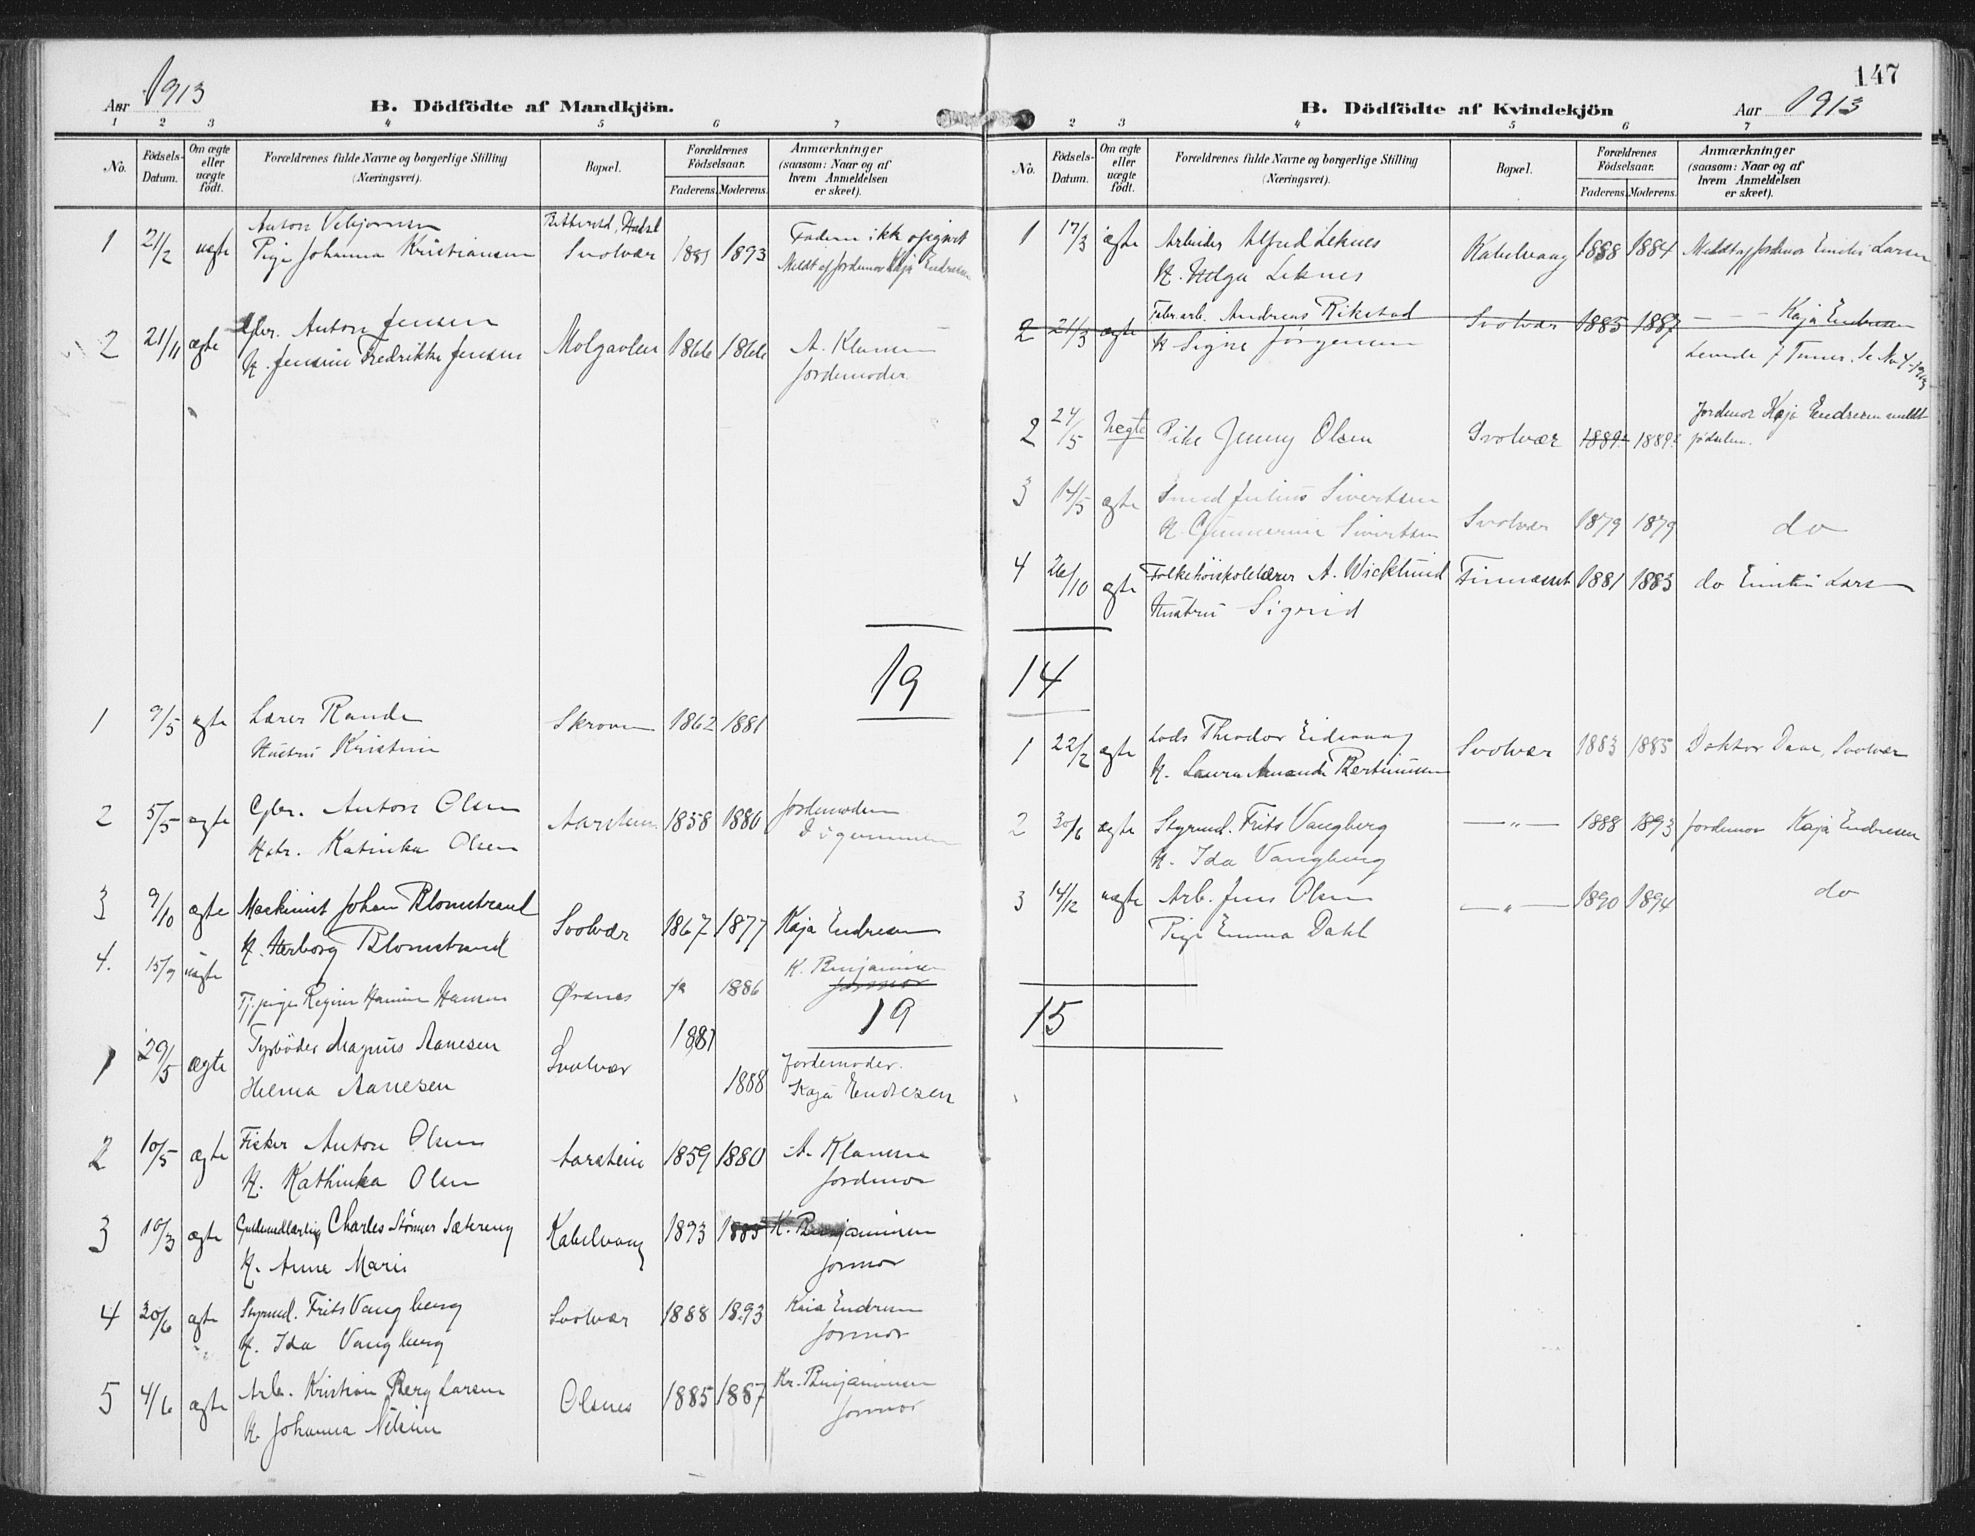 147
Aar 1913
B. Dödfödte af Mandkjön.
1 2 3 4 5 6 7
No. Födsels-Datum. Om ægte eller uægte födt. Forældrenes fulde Navne og borgerlige Stilling (Næringsvei). Bopæl. Forældrenes Födselsaar. Faderens. Moderens. Anmærkninger (saasom: Naar og af hvem Anmeldelsen er skeet).
Anton
1 21/2 uægte Pige Johanna Kristiansen Svolvær 1893
Faderen ikke opgivet
Meldt af Jordemor Kaja Endresen
2 21/11 ægte Gbr. Anton Jensen Molgavlen 1866 1866 A. Klamm
H. Jensine Fredrikke Jensen
Jordemoder
19
1 9/5 ægte Lærer Rande Skroven 1862 1881
Hustru Kristine
2 5/5 ægte Gbr. Anton Olsen Aarstein 1858 1880 Jordemoderen
Hstr. Katinka Olsen
3 9/10 ægte Maskinist Johan Blomstrand Svolvær 1867 1877 Kaja Endresen
H. Herborg Blomstrand
4. 15/9 uægte Tj. pige Regine Hansen Ørsnes 1886 K. Benjaminsen
Jormor
19
1 29/5 ægte Fyrbøder Magnus Aanesen Svolvær 1881
Helma Aanesen 1888 Jordemoder.
Kaja Endresen
2 10/5 ægte Fisker Anton Olsen Aarstein 1859 1880 A. Klamm
H. Kathinka Olsen Jordemor
3 10/3 ægte Charles Størmer Sætereng Kabelvaag 1893 1885 K. Benjaminsen
H. Anne Marie Jormor
4 30/6 ægte Styrmd. Frits Vangberg Svolvær 1888 1893 Kaia Endresen
H. Ida Vangberg Jormor
5 4/6 ægte Arb. Kristian Berg Larsen Olsnes 1885 1887 Kr. Benjaminsen
H. Johanna Nilsen Jormor
B. Dödfödte af Kvindekjön
Aar 1913
2 3 4 5 6 7
No. Födsels-Datum. Om ægte eller uægte födt. Forældrenes fulde Navne og borgerlige Stilling (Næringsvei). Bopæl. Forældrenes Födselsaar. Faderens. Moderens. Anmærkninger (saasom: Naar og af hvem Anmeldelsen er skeet).
1 17/3 ægte Arbeider Alfred Leknes Kabelvaag 1888 1884 Meldt af Jordemor Emilie Larsen
H. Helga Leknes
2 21/3 ægte Fabr. arb. Andreas Rikstad Svolvær 1885 1887 — — Kaja Endresen
H Signe Jørgensen Levede 7 Timer. Se No 4 - 1913
2 24/5 Uægte Pike Jenny Olsen Svolvær 1889. 1889. Jordemor Kaja Endresen meldt fødselen.
3 14/5 ægte Smed Julius Sivertsen
H. Sivertsen Svolvær 1879 1879 do
4 26/10 ægte Folkehøiskolelærer A. Wicklund Finnæset 1881 1883 do Emilie Larsen
Hustru Sigrid
14
1 22/2 ægte Lods Theodor Svolvær 1883 1885 Doktor Daae, Svolvær
H. Laura Amanda
2 30/6 ægte Styrmd. Frits Vangberg —"— 1888 1893 Jordemor Kaja Endresen
H. Ida Vangberg
3 14/12 uægte Arb. Jens Olsen —"— 1890 1894 do
Pige Emma Dahl
15